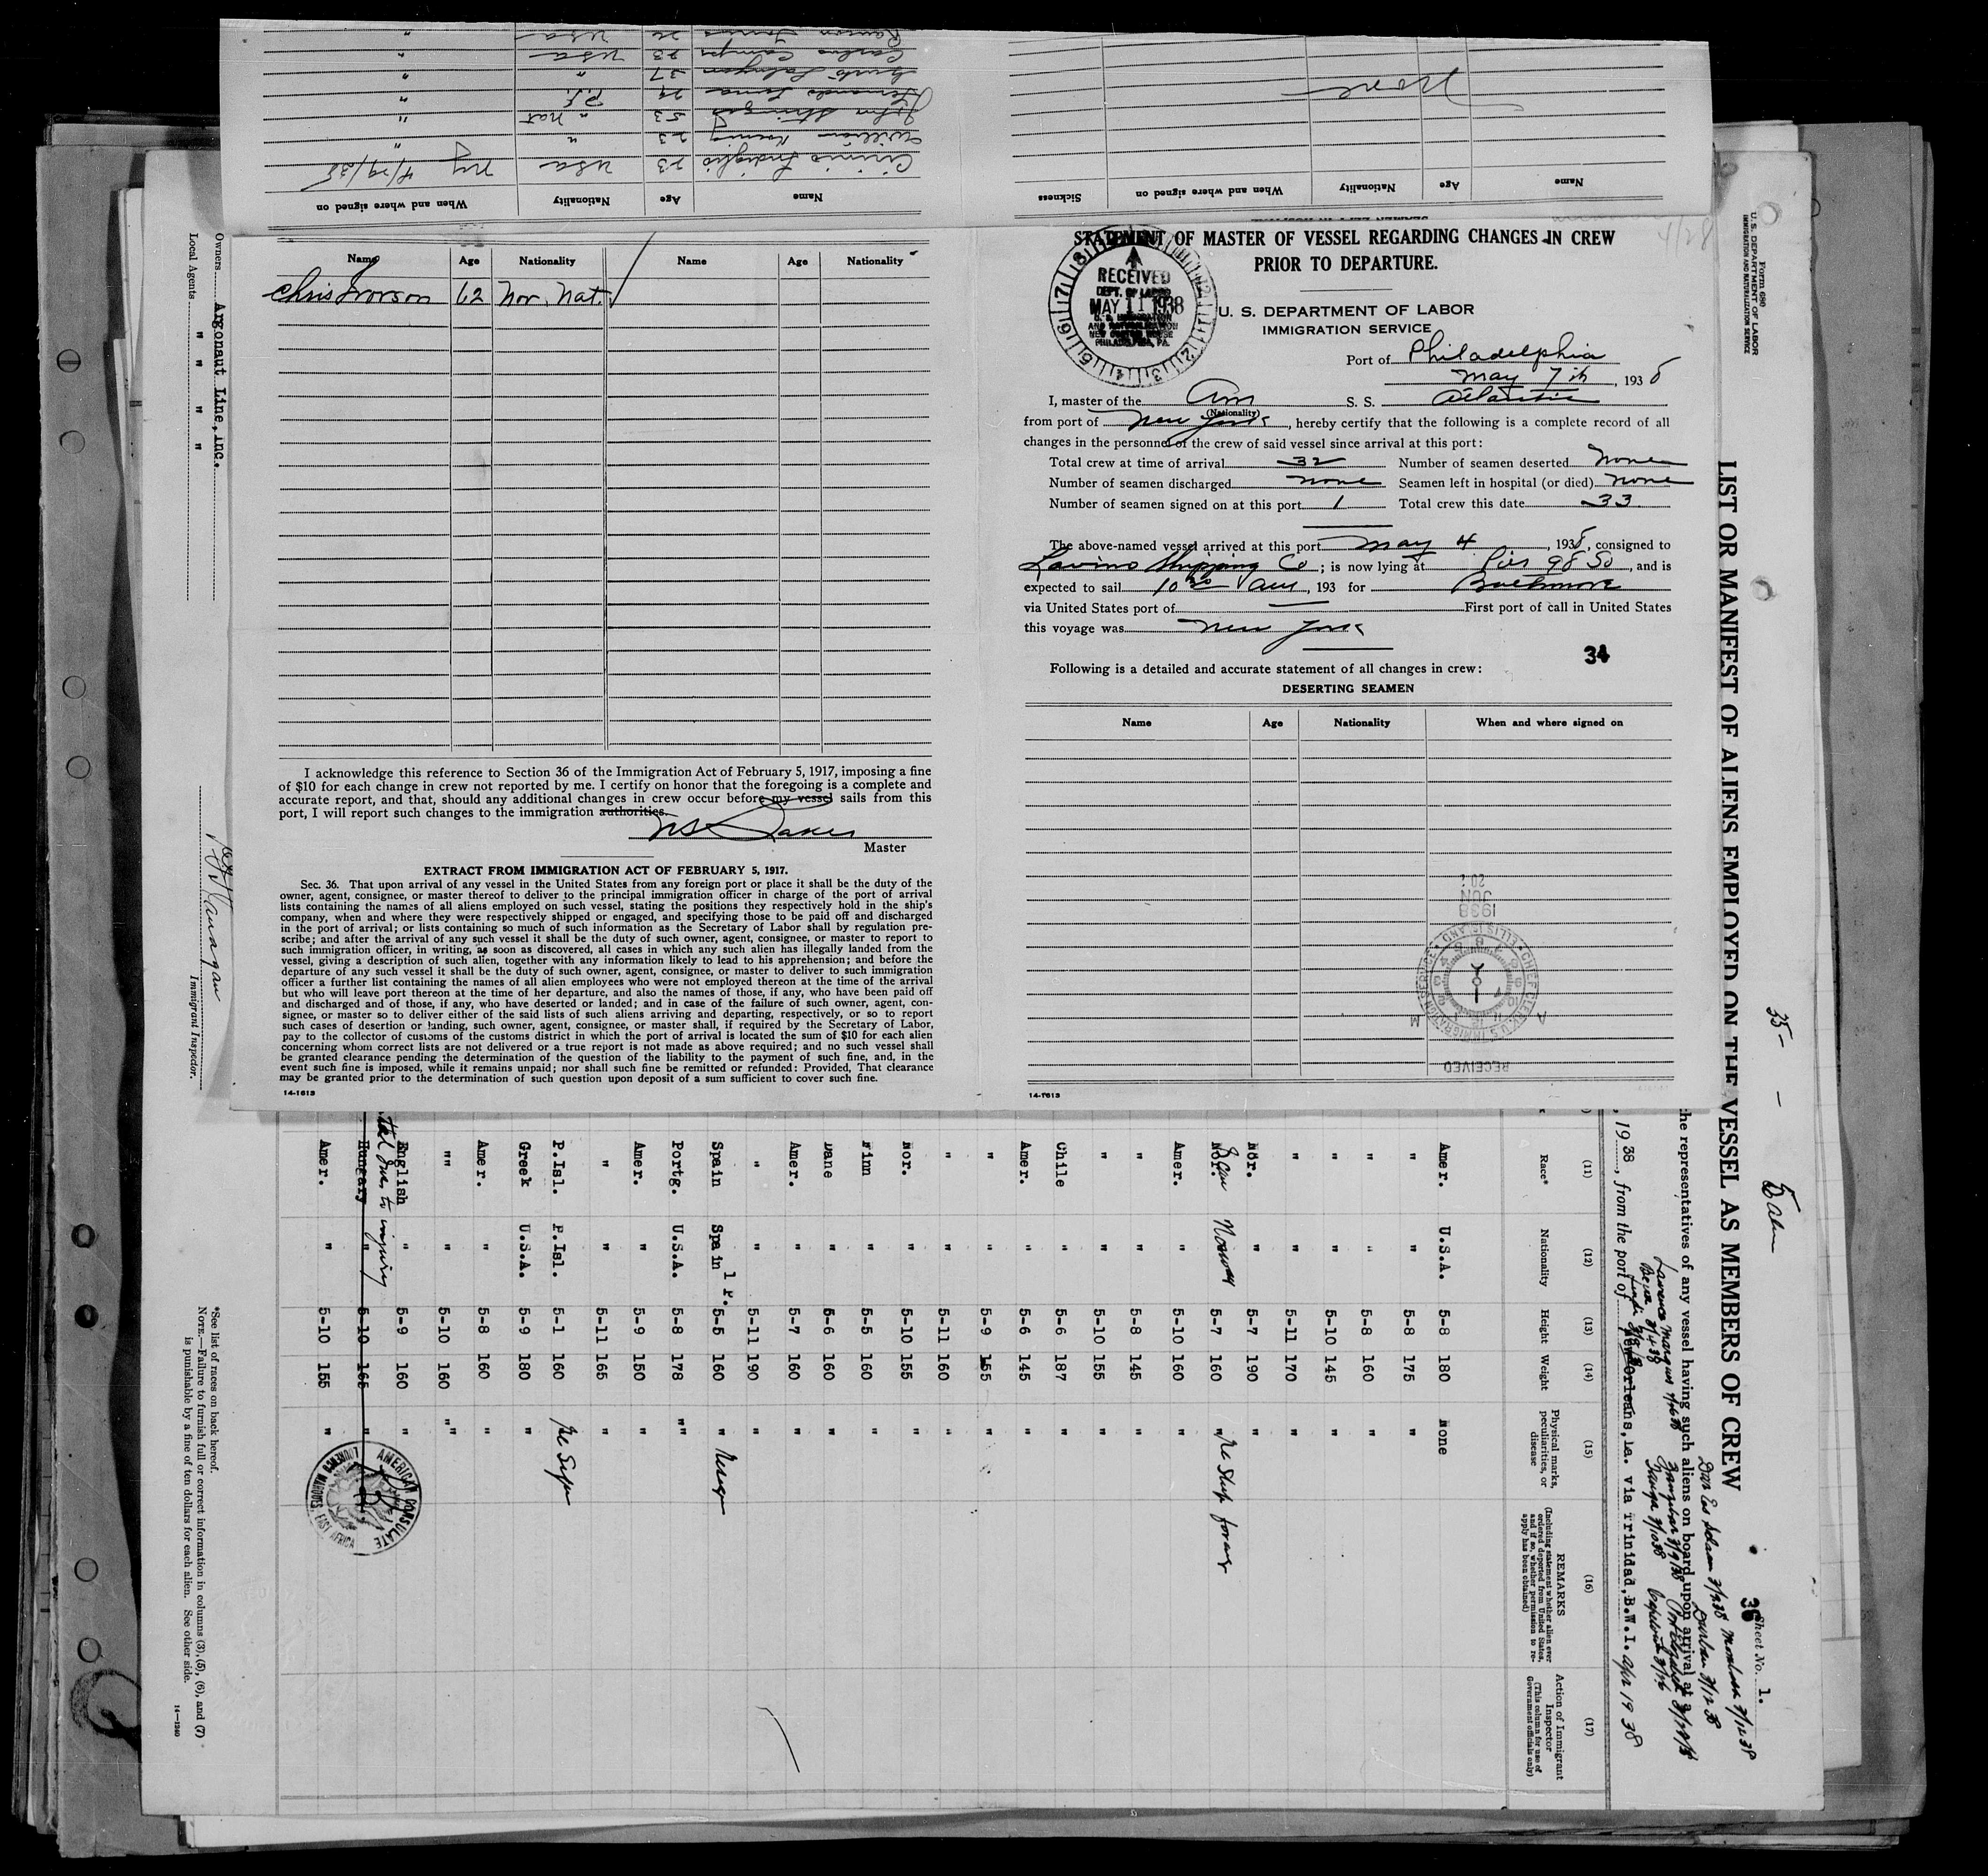 Name Age Nationality When and where signed on
Cirinio Indiglio 23 USA NY 4/29/38
William 23 " "
John 53 " nat "
Fernando 29 P.I. "
37 " "
Carlos Campos 23 USA "
Ramon Torres 26 USA "
Name Age Nationality When and where signed on Sickness
None
Name Age Nationality Name Age Nationality
Chris 62 Nor. Nat.
I acknowledge this reference to Section 36 of the Immigration Act of February 5, 1917, imposing a fine
of $10 for each change in crew not reported by me. I certify on honor that the foregoing is a complete and
accurate report, and that, should any additional changes in crew occur before my vessel sails from this
port, I will report such changes to the immigration authorities.
Master
EXTRACT FROM IMMIGRATION ACT OF FEBRUARY 5, 1917.
Sec. 36. That upon arrival of any vessel in the United States from any foreign port or place it shall be the duty of the
owner, agent, consignee, or master thereof to deliver to the principal immigration officer in charge of the port of arrival
lists containing the names of all aliens employed on such vessel, stating the positions they respectively hold in the ship's
company, when and where they were respectively shipped or engaged, and specifying those to be paid off and discharged
in the port of arrival; or lists containing so much of such information as the Secretary of Labor shall by regulation pre-
scribe; and after the arrival of any such vessel it shall be the duty of such owner, agent, consignee, or master to report to
such immigration officer, in writing, as soon as discovered, all cases in which any such alien has illegally landed from the
vessel, giving a description of such alien, together with any information likely to lead to his apprehension; and before the
departure of any such vessel it shall be the duty of such owner, agent, consignee, or master to deliver to such immigration
officer a further list containing the names of all alien employees who were not employed thereon at the time of the arrival
but who will leave port thereon at the time of her departure, and also the names of those, if any, who have been paid off
and discharged and of those, if any, who have deserted or landed; and in case of the failure of such owner, agent, con-
signee, or master so to deliver either of the said lists of such aliens arriving and departing, respectively, or so to report
such cases of desertion or landing, such owner, agent, consignee, or master shall, if required by the Secretary of Labor,
pay to the collector of customs of the customs district in which the port of arrival is located the sum of $10 for each alien
concerning whom correct lists are not delivered or a true report is not made as above required; and no such vessel shall
be granted clearance pending the determination of the question of the liability to the payment of such fine, and, in the
event such fine is imposed, while it remains unpaid; nor shall such fine be remitted or refunded: Provided, That clearance
may be granted prior to the determination of such question upon deposit of a sum sufficient to cover such fine.
14-1613
4/28
STATEMENT OF MASTER OF VESSEL REGARDING CHANGES IN CREW
PRIOR TO DEPARTURE.
RECEIVED
DEPT. OF LABOR
MAY 11 1938
U. S. IMMIGRATION
AND NATURALIZATION
NEW CUSTOM HOUSE
PHILADELPHIA, PA.
U. S. DEPARTMENT OF LABOR
IMMIGRATION SERVICE
Port of Philadelphia
May 7th, 1938
I, master of the Am S. S. Atlantic
(Nationality)
from port of New York, hereby certify that the following is a complete record of all
changes in the personnel of the crew of said vessel since arrival at this port:
Total crew at time of arrival 32 Number of seamen deserted None
Number of seamen discharged none Seamen left in hospital (or died) none
Number of seamen signed on at this port 1 Total crew this date 33
The above-named vessel arrived at this port May 4, 1938, consigned to
Lavino Shipping Co; is now lying at Pier 98 So, and is
expected to sail 10 30 am, 193 for Baltimore
via United States port of — First port of call in United States
this voyage was New York
34
Following is a detailed and accurate statement of all changes in crew:
DESERTING SEAMEN
Name Age Nationality When and where signed on
RECEIVED
CHIEF CLERK U.S. IMMIGRATION SERVICE • ELLIS ISLAND
1938
JUN
A M
14-1613
Form 686
U. S. DEPARTMENT OF LABOR
IMMIGRATION AND NATURALIZATION SERVICE
35 -
Sheet No. 1.
36
LIST OR MANIFEST OF ALIENS EMPLOYED ON THE VESSEL AS MEMBERS OF CREW
the representatives of any vessel having such aliens on board upon arrival at a
, 1938, from the port of New Orleans, La. via Trinidad, B.W.I. Apr 19 38
(11) (12) (13) (14) (15) (16) (17)
Race* Nationality Height Weight Physical marks, peculiarities, or disease REMARKS (Including statement whether alien ever ordered deported from United States, and if so, whether permission to re-apply has been obtained) Action of Immigrant Inspector (This column for use of Government officials only)
Amer. U.S.A. 5-8 180 None
" " 5-8 175 "
" " 5-8 160 "
" " 5-10 145 "
" " 5-11 170 "
Nor. " 5-7 190 "
Nor. Norway 5-7 160 "
Amer. " 5-10 160 "
" " 5-8 145 "
" " 5-10 155 "
Chile " 5-6 187 "
Amer. " 5-6 145 "
" " 5-9 155 "
" " 5-11 160 "
Nor. " 5-10 155 "
Finn " 5-5 160 "
Dane " 5-6 160 "
Amer. " 5-7 160 "
" " 5-11 190 "
Spain Spain 1 P. 5-5 160 "
Portg. U.S.A. 5-8 178 "
Amer. " 5-9 150 "
" " 5-11 165 "
P.Isl. P.Isl. 5-1 160
Greek U.S.A. 5-9 180 "
Amer. " 5-8 160 "
" " 5-10 160 "
English " 5-9 160 "
Hungary " 5-10 165 "
Amer. " 5-10 155 "
due to injury
AMERICAN CONSULATE
LOURENCO MARQUES, EAST AFRICA
Owners Argonaut Line, Inc.
Local Agents " " " "
Immigrant Inspector.
*See list of races on back hereof.
NOTE.—Failure to furnish full or correct information in columns (3), (5), (6), and (7)
is punishable by a fine of ten dollars for each alien. See other side.
14-1240